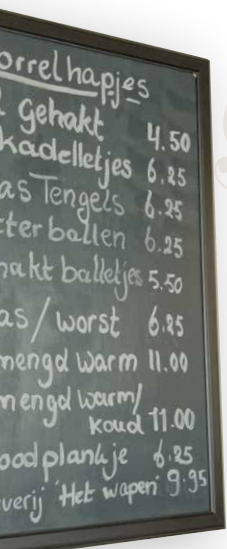 orrelhapjes
gehakt 4.50
kadelletjes 6.25
as Tengels 6.25
tterballen 6.25
hakt balletjes 5.50
as/worst 6.25
mengd warm 11.00
mengd warm/
koud 11.00
oodplankje 6.25
verij 'Het wapen' 9.95